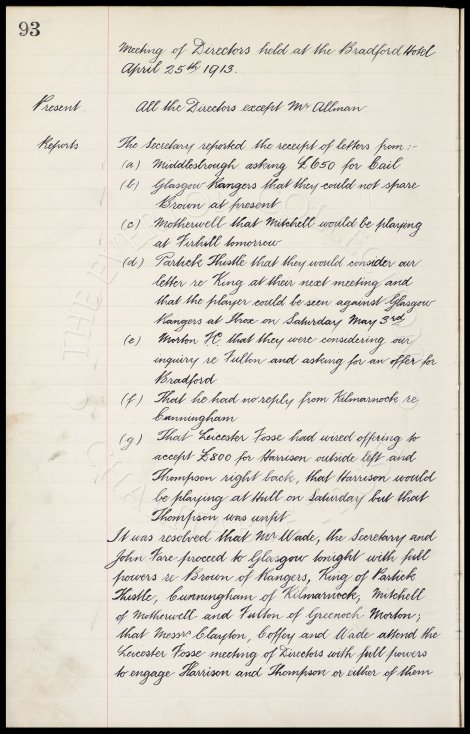 93
Meeting of Directors held at the Bradford Hotel
April 25th 1913.
Present All the Directors except Mr Allman
Reports The Secretary reported the receipt of letters from:-
(a) Middlesbrough asking £650 for Cail
(b) Glasgow Rangers that they could not spare
Brown at present
(c) Motherwell that Mitchell would be playing
at Firhill tomorrow
(d) Partick Thistle that they would consider our
letter re King at their next meeting and
that the player could be seen against Glasgow
Rangers at Ibrox on Saturday May 3rd
(e) Morton FC. that they were considering our
inquiry re Fulton and asking for an offer for
Bradford
(f) That he had no reply from Kilmarnock re
Cunningham
(g) That Leicester Fosse had wired offering to
accept £800 for Harrison outside left and
Thompson right back, that Harrison would
be playing at Hull on Saturday but that
Thompson was unfit
It was resolved that Mr Wade, the Secretary and
John Fare proceed to Glasgow tonight with full
powers re Brown of Rangers, King of Partick
Thistle, Cunningham of Kilmarnock, Mitchell
of Motherwell and Fulton of Greenock Morton;
that Messrs Clayton, Coffey and Wade attend the
Leicester Fosse meeting of Directors with full powers
to engage Harrison and Thompson or either of them
THE EVERTON